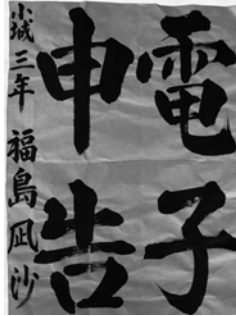 電子
申告
小城三年 福島凪沙